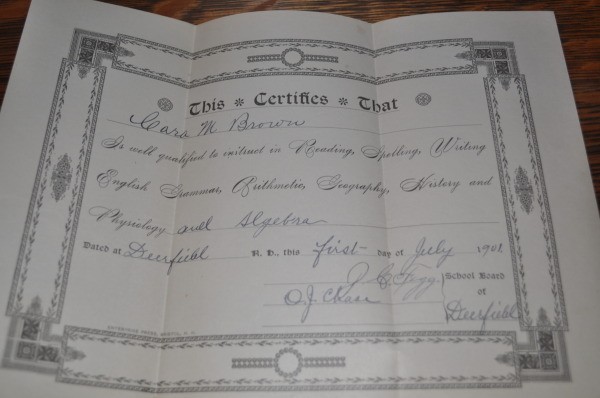 This Certifies That
Cara M Brown
Is well qualified to instruct in Reading, Spelling, Writing
English Grammar, Arithmetic, Geography, History and
Physiology and Algebra
Dated at Deerfield N. H., this first day of July 1902
J. C. Fogg. School Board
O. J. Chase of
Deerfield